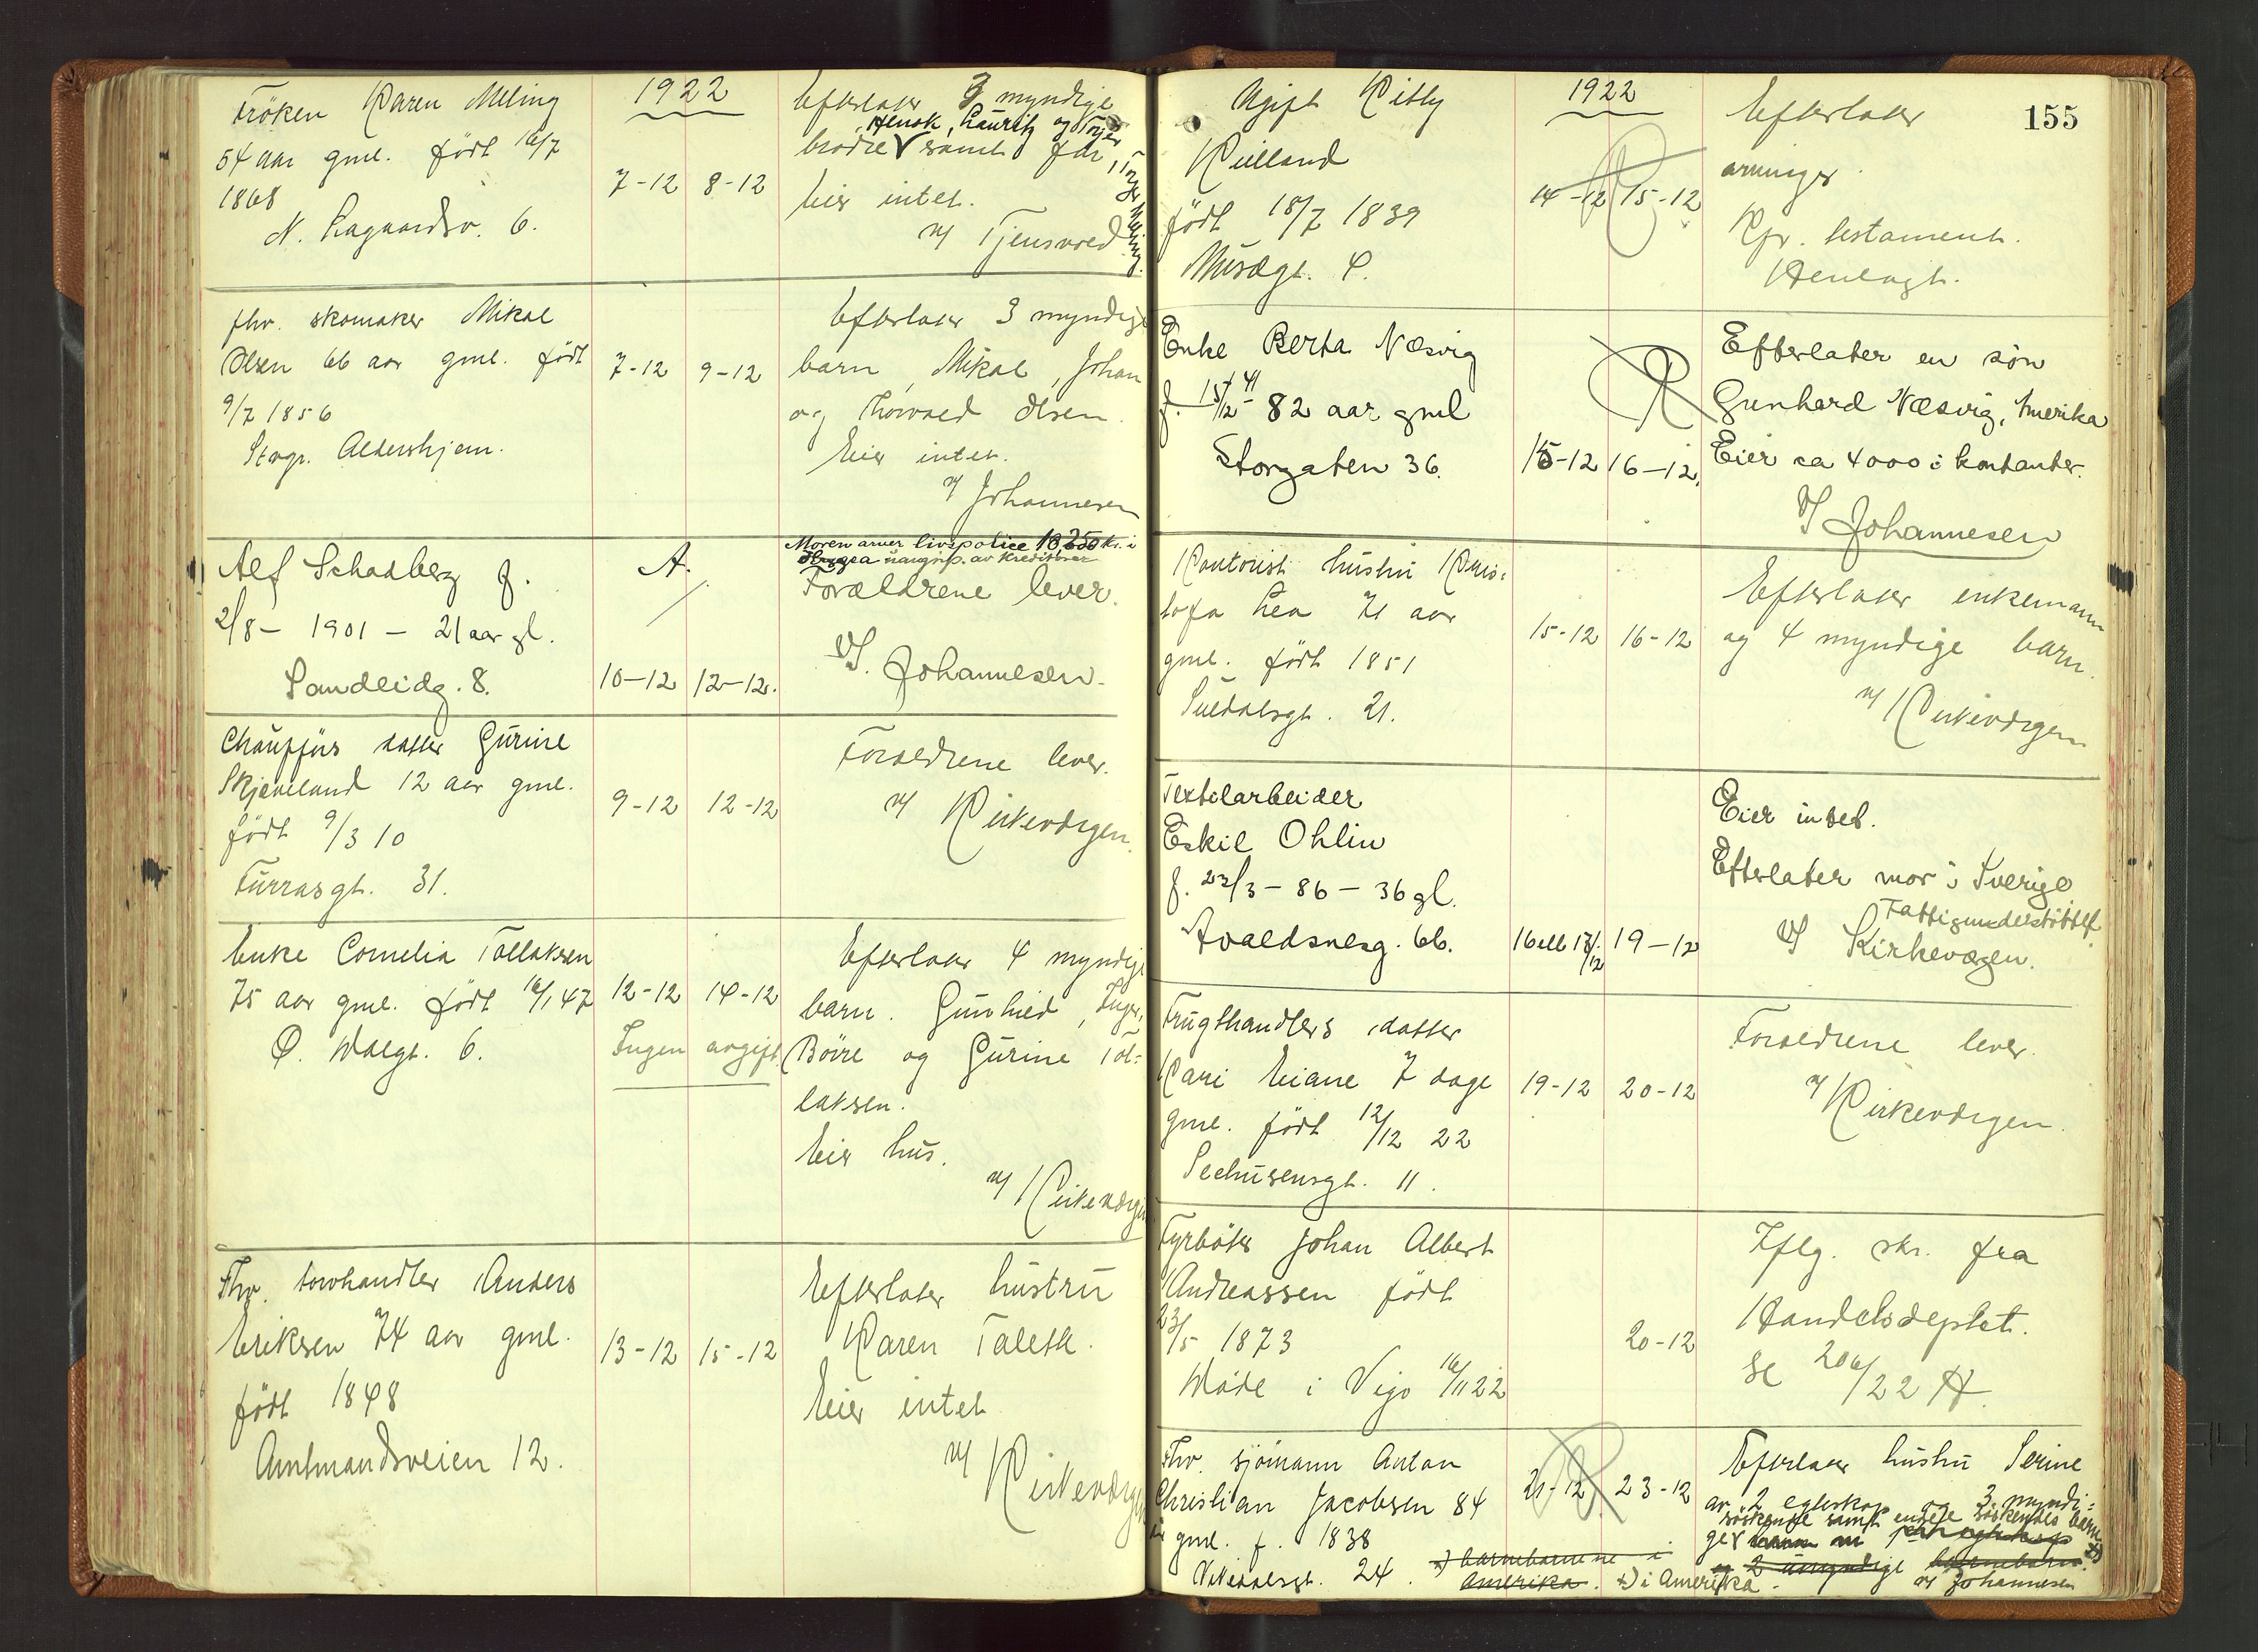 Frøken Karen Meling
54 aar gml. født 16/7
1868
N. Lagaardsv. 6.
1922
7-12 8-12
Efterlater 3 myndige
Henok, Lauritz og Torger
brødre V samt far, Torger Meling.
Eier intet.
v/ Tjensvold
fhv. skomaker Mikal
Olsen 66 aar gml. født
9/7 1856
Stvgr. Aldershjem.
7-12 9-12
Efterlater 3 myndige
barn, Mikal, Johan
og Thorvald Olsen.
Eier intet.
v/ Johannesen
Alf Schadberg f.
2/8 - 1901 - 21 aar gl.
Sandeidg. 8.
A.
10-12 12-12.
Moren arver livspolice 10,250 kr. i
uangrip. av kreditorer
Forældrene lever.
v/ Johannesen
Chaufførs datter Gurine
Skjæveland 12 aar gml.
født 9/3 10
Furrasgt. 31.
9-12 12-12
Forældrene lever.
v/ Kirkevergen.
Enke Cornelia Tollaksen
75 aar gml. født 16/1 47
Ø. Walgt. 6.
12-12 14-12
Ingen avgift.
Efterlater 4 myndige
barn. Gunhild, Inger,
Børre og Gurine Tol-
laksen.
Eier hus.
v/ Kirkevergen
Fhv. torvhandler Anders
Eriksen 74 aar gml.
født 1848
Amtmandsveien 12.
13-12 15-12
Efterlater hustru
Karen Taleth.
Eier intet
v/ Kirkevergen
155
Ugift Kitty
Kielland
født 18/7 1839
Musægt. 4.
1922
14-12 15-12
Efterlater
arvinger.
Kfr. testament.
Henlagt.
Enke Berta Næsvig
f. 15/12 - 41 82 aar gml
Storgaten 36.
15-12 16-12.
Efterlater en søn
Gunhard Næsvig, Amerika
Eier ca 4000 i kontanter.
v/ Johannesen
Kontorist hustru Kris-
tofa Lea 71 aar
gml. født 1851
Suldalsgt. 21.
15-12 16-12
Efterlater enkemann
og 4 myndige barn.
v/ Kirkevergen
Textilarbeider
Eskil Ohlin
f. 23/3 - 86 - 36 gl.
Avaldsnesg. 66.
16 ell 17/12 19-12
Eier intet.
Efterlater mor i Sverige
Fattigunderstøttet
v/ Kirkevergen.
Frugthandlers datter
Kari Eiane 7 dage
gml. født 12/12 22
Sechusensgt. 11.
19-12 20-12
Forældrene lever.
v/ Kirkevergen.
Fyrbøter Johan Albert
Andreassen født
23/5 1873
Døde i Vigo 16/11 22
20-12
Iflg. skr. fra
Handelsdeptet.
se 206/22 A.
Fhv. sjømann Anton
Christian Jacobsen 84
år gml. f. 1838
Vikedalsgt. 24.
21-12 23-12
Efterlater hustru Serine
av 2 egteskap og 3 myndi-
søskende samt endel søskendes barn x)
ge V barn
og 2 umyndige barnebarn
v/ Johannesen
x) barnebarnene i
Amerika. x) i Amerika.